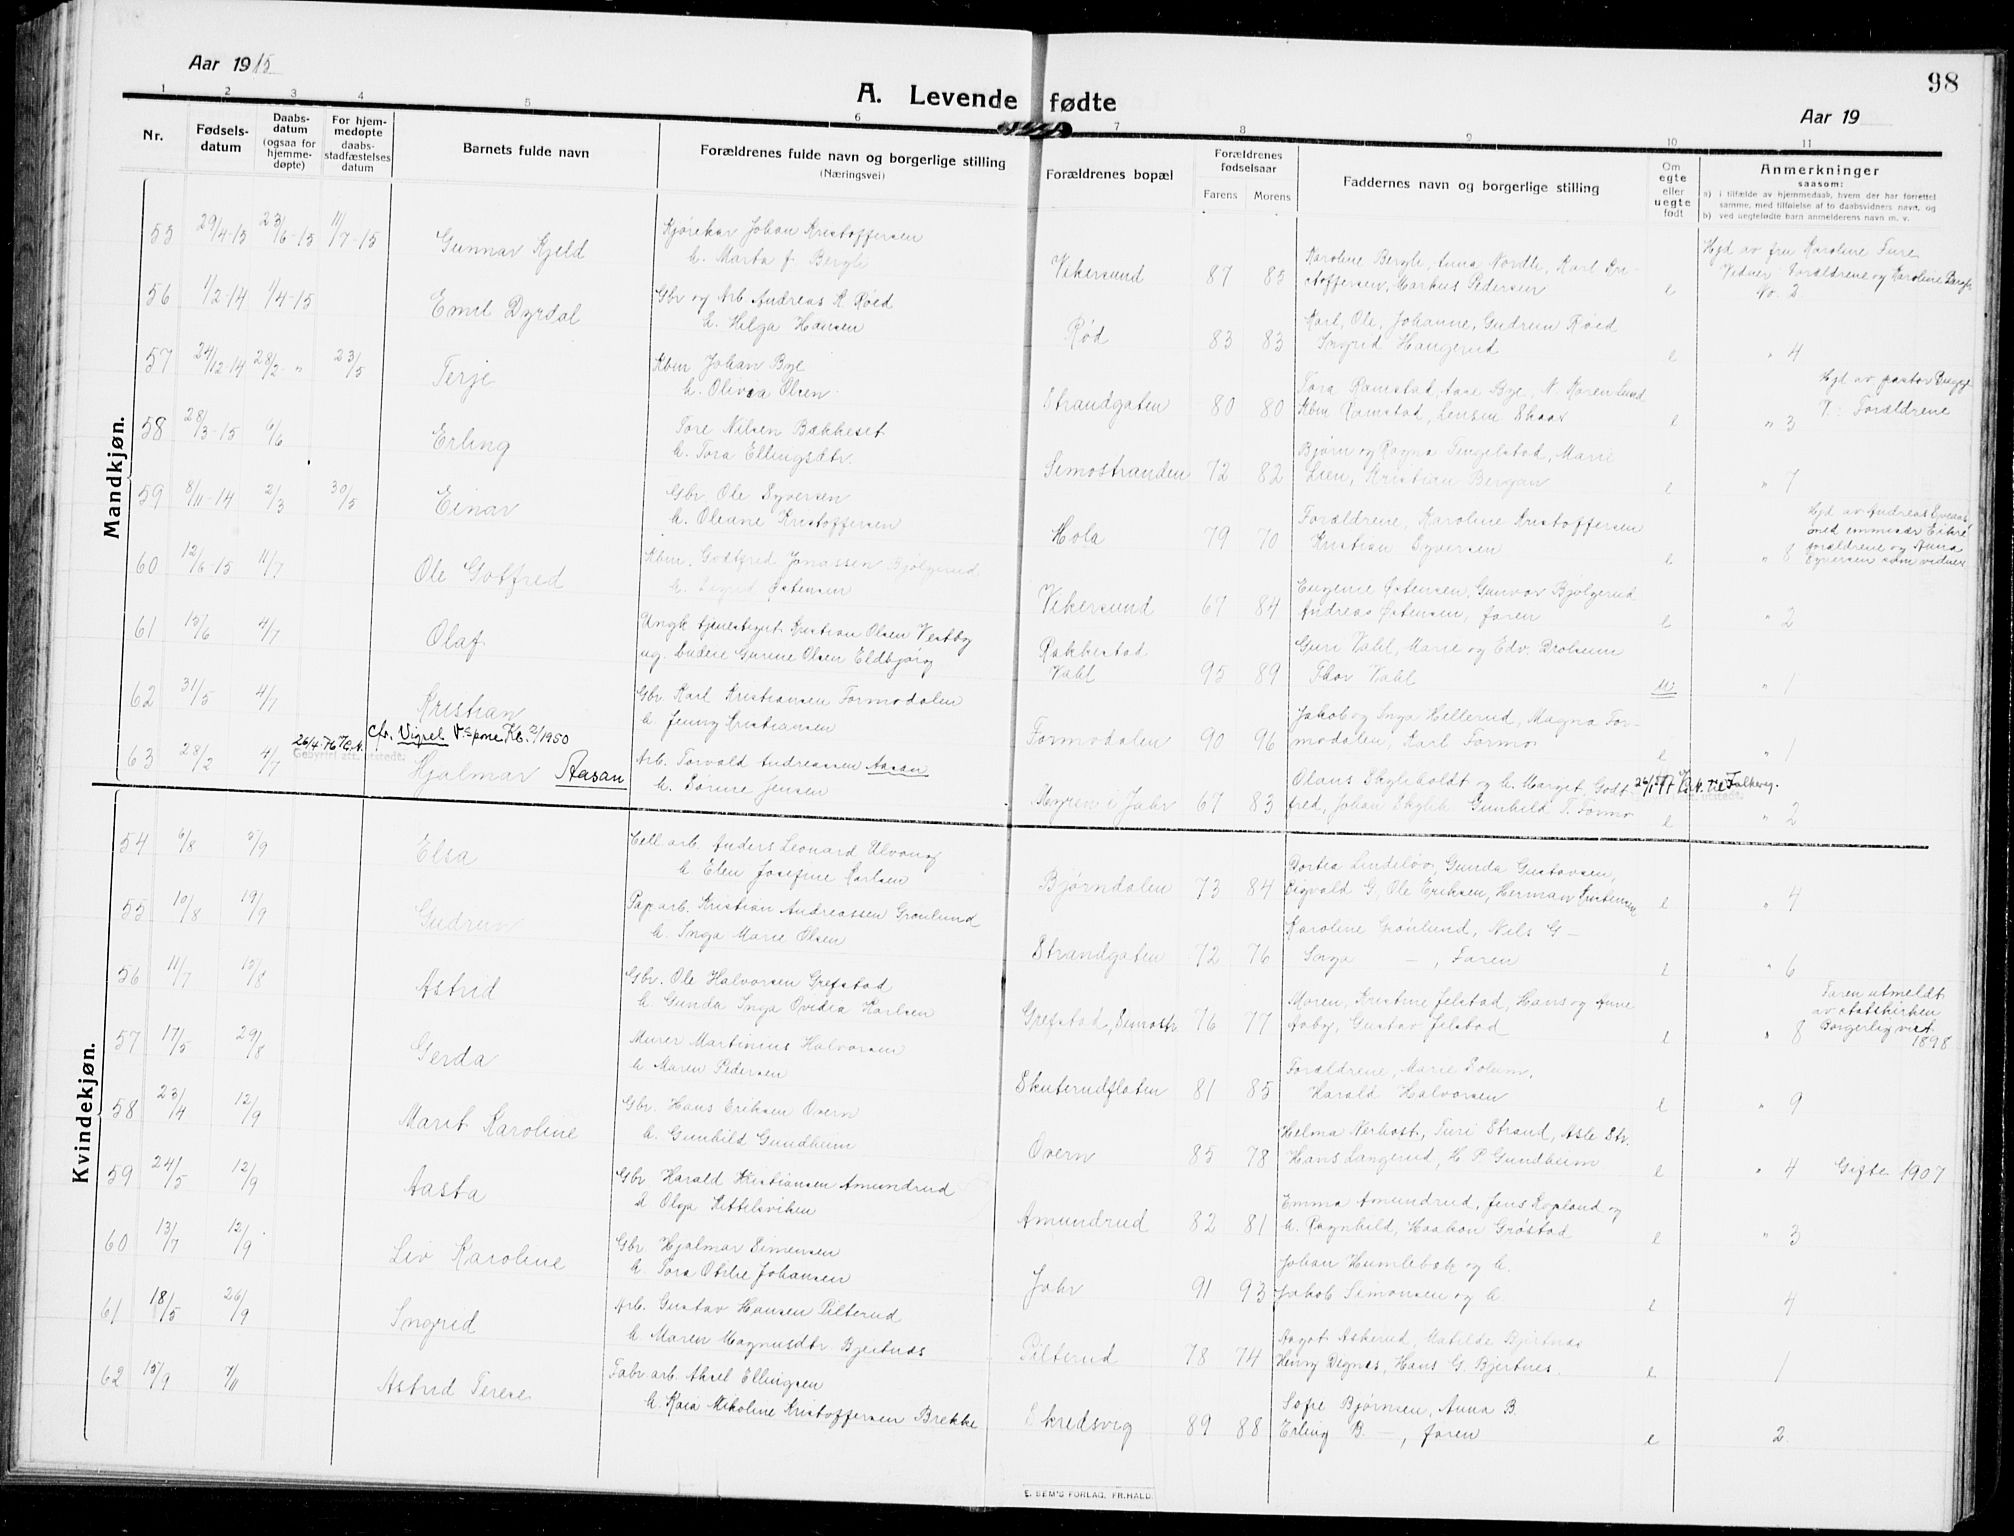 Aar 1915
98
A. Levende fødte
Aar 19
1 2 3 4 5 6 7 8 9 10 11
Nr.
Fødsels-
datum
Daabs-
datum
(ogsaa for
hjemme-
døpte)
For hjem-
medøpte
daabs-
stadfæstelses
datum
Barnets fulde navn
Forældrenes fulde navn og borgerlige stilling
(Næringsvei)
Forældrenes bopæl
Forældrenes
fødselsaar
Farens Morens
Faddernes navn og borgerlige stilling
Om
egte
eller
uegte
født
Anmerkninger
saasom:
a) i tilfælde av hjemmedaab, hvem der har forrettet
samme, med tilføielse af to daabsvidners navn, og
b) ved uegtefødte barn anmelderens navn m. v.
Mandkjøn.
55 29/4-15 23/6-15 11/7-15 Gunnar Kjeld
Kjørekar Johan Kristoffersen
h. Marta f. Bergli
Vikersund 87 85
Karoline Bergli, Anna Nordli, Karl Kri-
stoffersen, Markus Pedersen e
Hjd av fru Karoline Fure
Vidner: Forældrene og Karoline Bergli
No. 2
56 1/2-14 1/4-15 Emil Dyrdal
Gbr og Arb Andreas R. Røed
h. Helga Hansen
Rød 83 83
Karl, Ole, Johanne, Gudrun Røed
Ingrid Haugerud e " 4
57 24/12-14 28/2 " 23/5 Terje
Kbm Johan Bye
h. Olivia Olsen
Strandgaten 80 80
Tora Ramstad, Aase Bye, N. Karen Lund
Kbm Ramstad, Jensen Skaar e " 3
Hjd av pastor Bugge
V: Forældrene
58 28/3-15 6/6 Erling
Tore Nilsen Bækkeset
h. Tora Ellingsdtr.
Simostranden 72 82
Bjørn og Ragna Tingelstad, Marie
Lien, Kristian Bergan e " 7
59 8/11-14 2/3 30/5 Einar
Gbr. Ole Syversen
h. Oleane Kristoffersen
Hola 79 70
Forældrene, Karoline Kristoffersen
Kristian Syversen e " 8
Hjd av Andreas
med emmisær Eikre
forældrene og Anna
Syversen som vidner
60 12/6-15 11/7 Ole Gotfred
Kbm. Godtfred Jonassen Bjølgerud
h. Sigrid Østensen
Vikersund 67 84
Eugenie Østensen, Gunvor Bjølgerud
Andreas Østensen, faren e " 2
61 15/6 4/7 Olaf
Ungk tjenestegut Kristian Olsen Vestby
ug. budeie Gurine Olsen Eldbjørg
Rakkestad
Vahl 95 89
Guri Vahl, Marie og Edv. Drolsum
Thor Vahl u " 1
62 31/5 4/7 Kristian
Gbr Karl Kristiansen Formodalen
h Jenny Kristiansen
Formodalen 90 96
Jakob og Inga Hellerud, Magna For-
modalen, Karl Formo e " 1
cfr. Vigsel V. Spone Kb. 2/1950
63 28/2 4/7 Hjalmar Aasan
Arb. Torvald Andreassen Aasan
h. Tørine Jensen
Myren i Jahr 67 83
Olaus Skyliboldt og h. Marget, Godt-
fred, Johan Skylib Gunhild T. Formo e " 2
Kvindekjøn.
54 6/8 5/9 Elsa
Cell arb. Anders Leonard Ulvong
h Elen Josefine Karlsen
Bjørndalen 73 84
Dortea Lindeløv, Gunda Gustavsen,
Sigvald G. Ole Eriksen, Herman Kristensen e " 4
55 10/8 19/9 Gudrun
Pap arb. Kristian Andreassen Grønlund
h. Inga Marie Olsen
Strandgaten 72 76
Karoline Grønlund, Nils G—
Inga — , Faren e " 6
56 11/7 15/8 Astrid
Gbr. Ole Halvorsen Grefstad
h. Gunda Inga Ovidia Karlsen
Grefstad, Simostr. 76 77
Moren, Kristine Jelstad, Hans og Anne
Aaby, Gustav Jelstad e " 8
Faren utmeldt
av statskirken
Borgerlig viet
1898
57 17/5 29/8 Gerda
Murer Martinius Halvorsen
h Maren Pedersen
Skuterudflaten 81 85
Forældrene, Marie Polum,
Harald Halvorsen e " 9
58 23/4 12/9 Marit Karoline
Gbr. Hans Eriksen Overn
h. Gunhild Gundheim
Overn 85 78
Helma Nerhost, Turi Strand, Asle Str.
Hans Langerud, H P Gundheim e " 4 Gifte 1907
59 24/5 12/9 Aasta
Gbr Harald Kristiansen Amundrud
h Olga Kittilsviken
Amundrud 82 81
Emma Amundrud, Jens Kopland og
h. Ragnhild, Haakon Grøstad e " 3
60 13/7 12/9 Liv Karoline
Gbr Hjalmar Simensen
h. Tora Otilie Johansen
Jahr 91 93
Johan Humlebæk og h.
Jakob Simonsen og h e 4
61 18/5 26/9 Ingrid
Arb. Gustav Hansen Pilterud
h Maren Magnusdtr Bjertnæs
Pilterud 78 74
Aagot Askerud, Matilde Bjertnæs
Henry Dignes, Hans G. Bjertnes. e 1
62 15/9 7/11 Astrid Terese
Fabr arb. Aksel Ellingsen
h. Kaia Nikoline Kristoffersen Brekke
Skredsvig 89 88
Sofie Bjørnsen, Anna B.
Erling B. — , faren e 2
E. SEM'S FORLAG, FR.HALD.